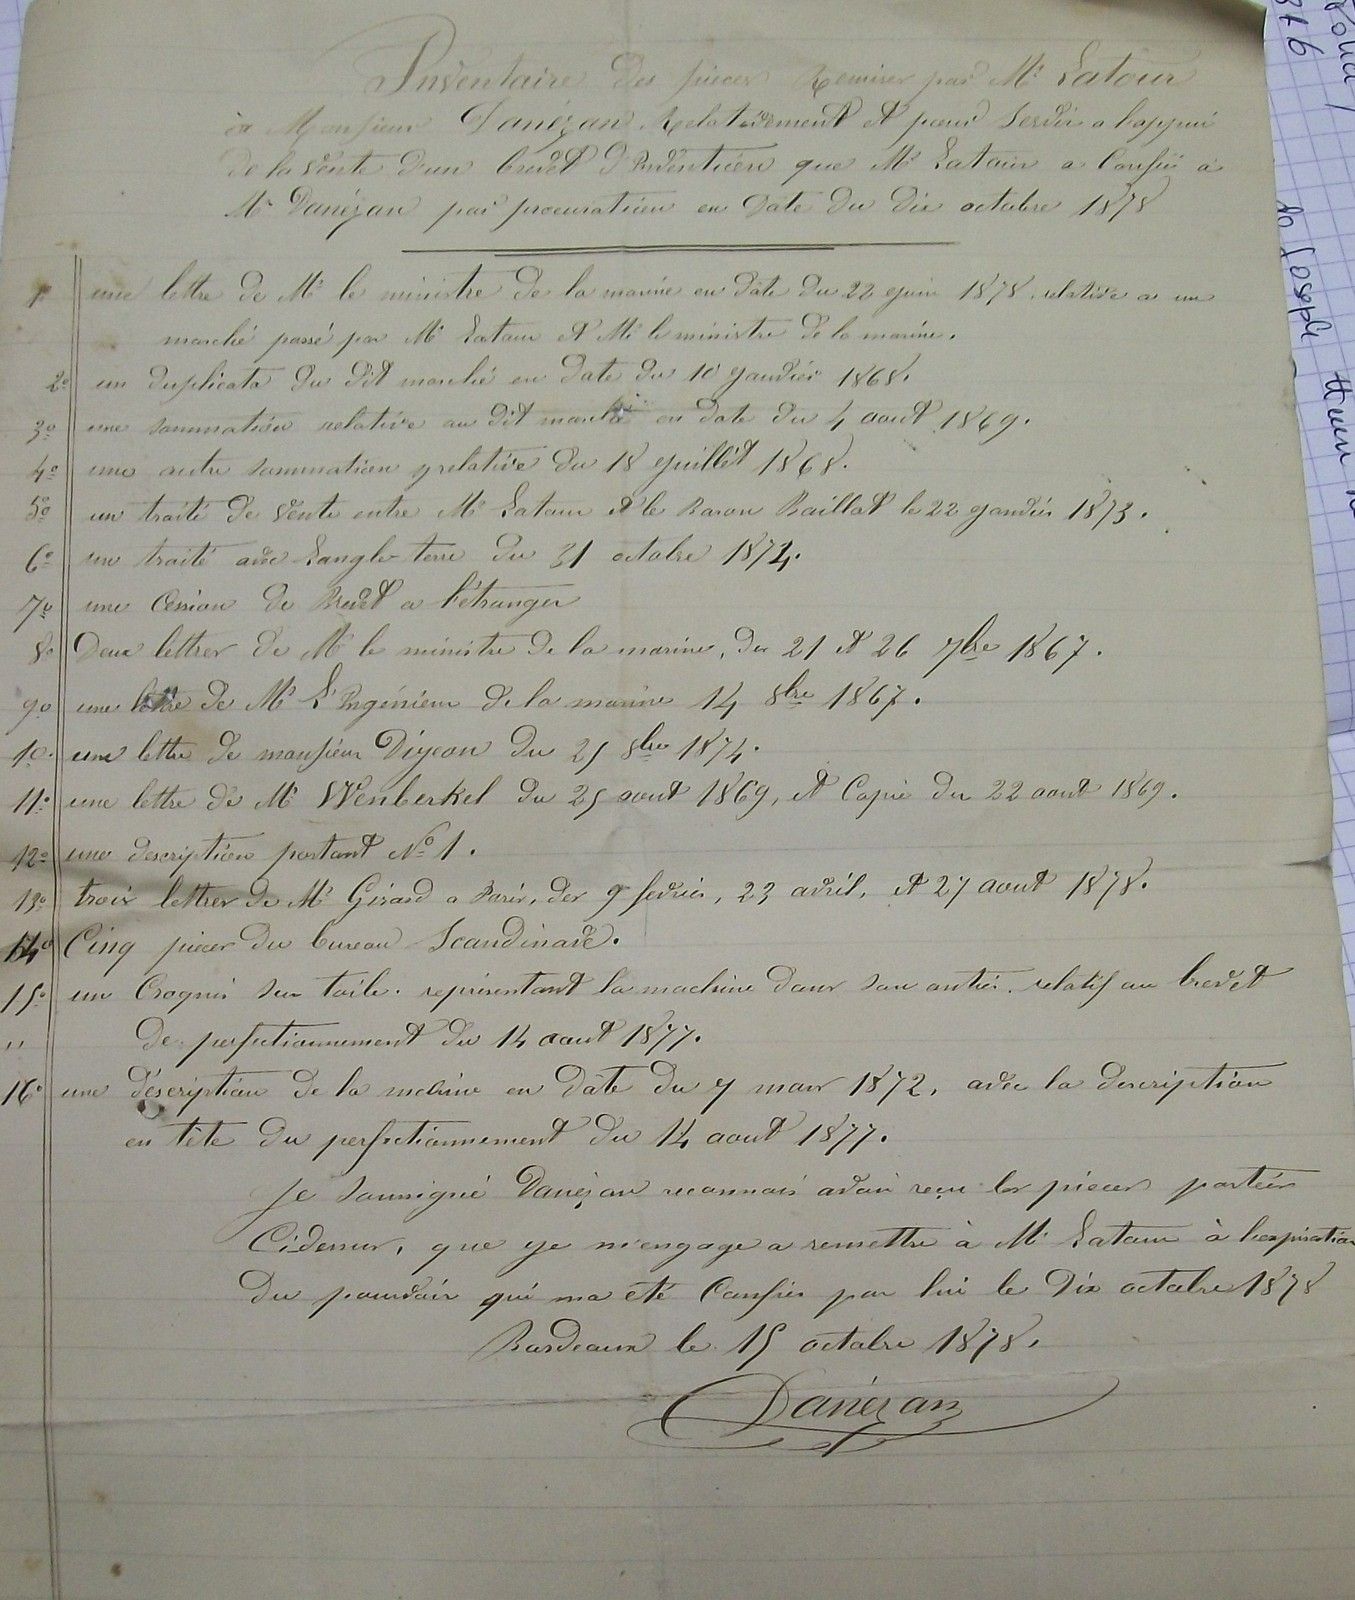 Inventaire des pieces Remises par Mr Latour
a Monsieur Danézan Relativement et pour Servir a lappui
de la vente dun brevet d'Invention que Mr Latour a Confié a
Mr Danézan par procuration en Date du Dix octobre 1878
1º une lettre de Mr le ministre de la marine en date du 22 juin 1878, relative a un
marché passé par Mr Latour et Mr le ministre de la marine.
2º un duplicata du dit marché en date du 10 Janvier 1868.
3º une sommation relative au dit marché en date du 4 aout 1869.
4º une autre sommation relative du 18 juillet 1868.
5º un traité de vente entre Mr Latour et le Baron Baillot le 22 janvier 1873.
6º un traité avec Langle-terre du 31 octobre 1874.
7º une Cession de Brevet a l'étranger
8º Deux lettres de Mr le ministre de la marine, du 21 et 26 7bre 1867.
9º une lettre de Mr L'Ingénieur de la marine 14 8bre 1867.
10º une lettre de monsieur Dijeon du 25 8bre 1874.
11º une lettre de Mr Wenberkel du 25 aout 1869, et Copie du 22 aout 1869.
12º une description portant Nº 1.
13º trois lettres de Mr Girard a Paris, des 9 fevrier, 23 avril, et 27 aout 1878.
14º Cinq pieces du bureau Scandinave.
15º un Croquis sur toile. représentant la machine dans son entier. relatif au brevet
" de perfectionnement du 14 aout 1877.
16º une déscription de la machine en Date du 7 mars 1872, avec la description
en tête du perfectionnement du 14 aout 1877.
Je soussigné Danézan reconnais avoir reçu les pieces portées
Cidessus, que je m'engage a remettre à Mr Latour à l'expiration
du pouvoir qui ma été Confier par lui le Dix octobre 1878
Bordeaux le 15 octobre 1878.
Danézan
376
Joseph